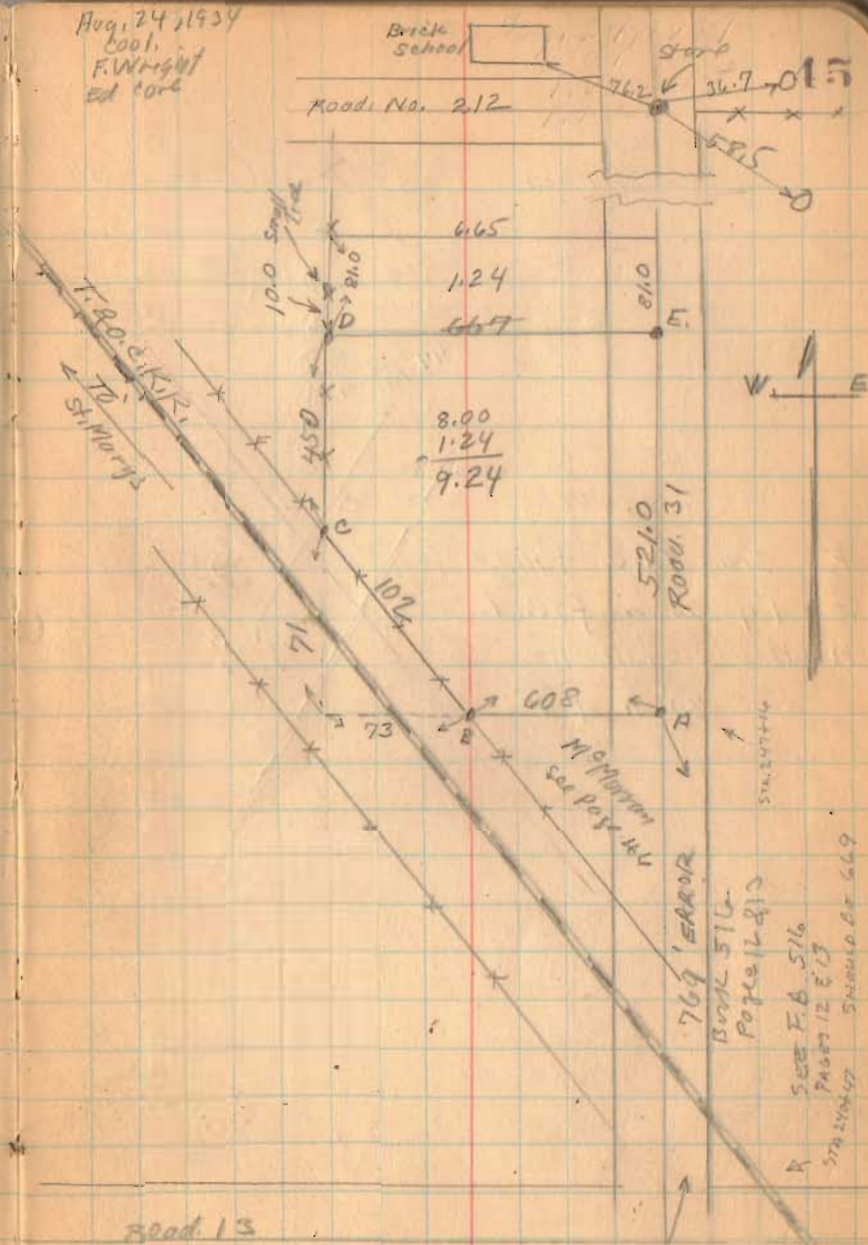 Aug. 24, 1934
Cool.
F. Wright
Ed
Brick
School
Stone
15
Road. No. 212
76.2
36.7
58.5
10.0 Small
Tree
81.0
6.65
1.24
667
81.0
D
E.
T.&O.C.R.R.
To
St. Marys
450
8.00
1.24
9.24
W E
C
102
71
521.0
Road. 31
73
B
608
A
McMorran
See page
Sta. 247+16
769 ERROR
Book 516
Page 12 &13
R SEE F.B. 516
PAGES 12 & 13
SHOULD BE 669
Road. 13